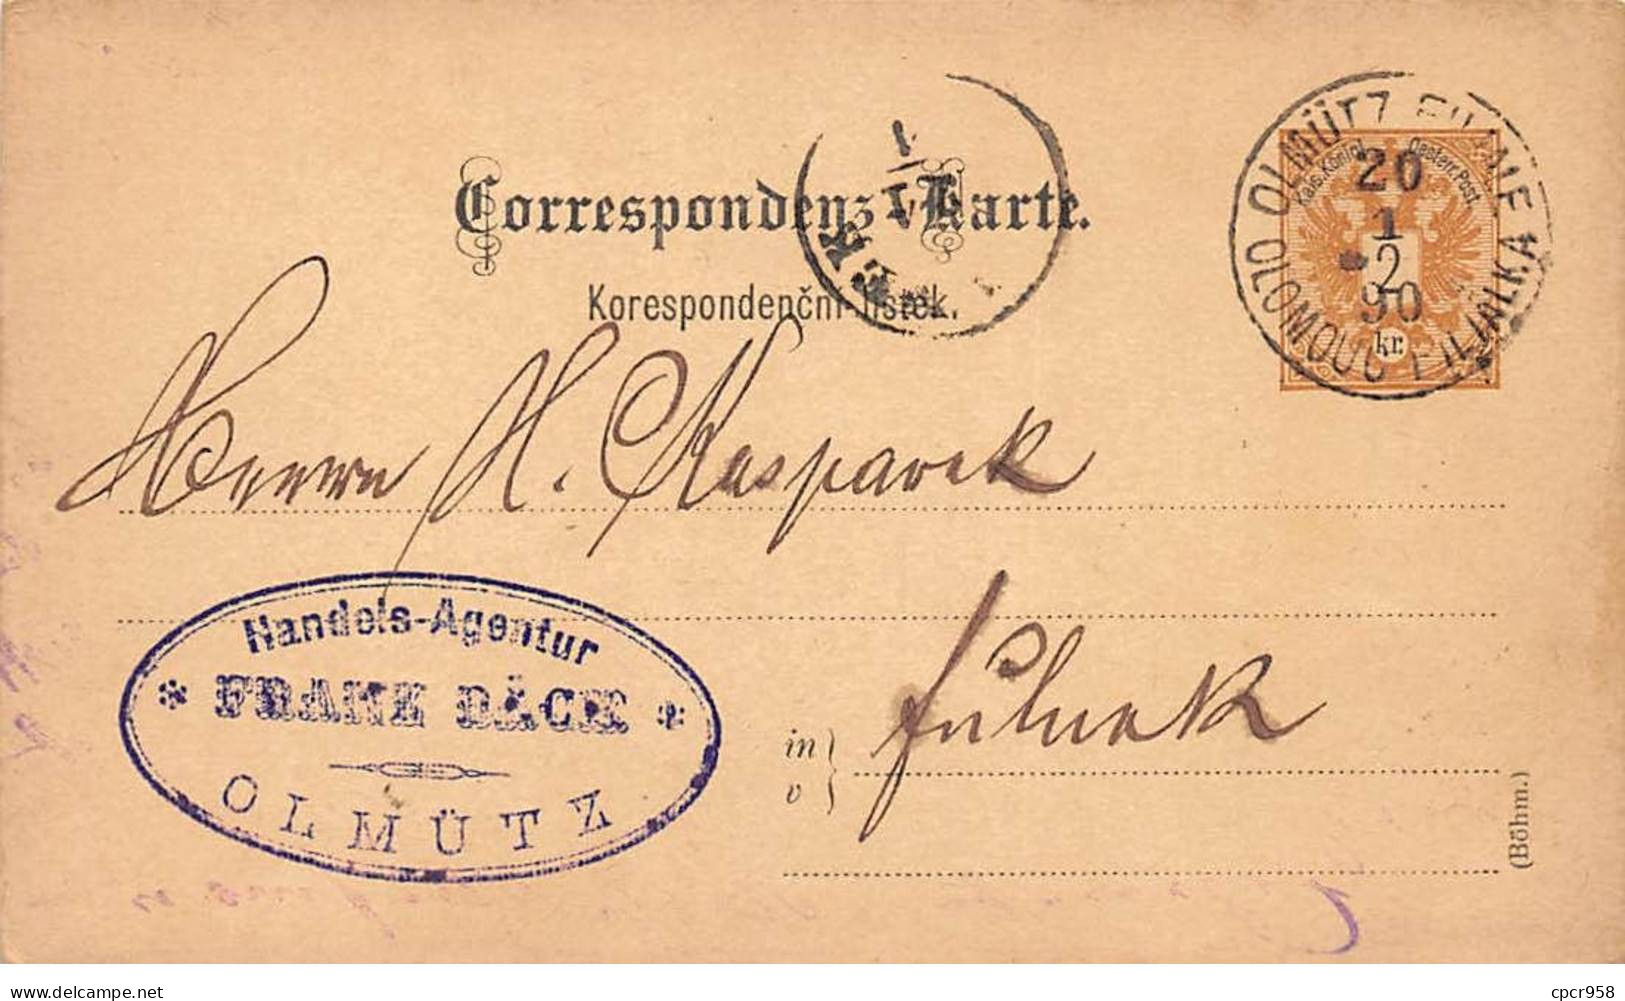 Correspondenz-Karte.
Korespondenční lístek.
OLMÜTZ FILIALE
OLOMOUC FILIÁLKA
20
1
90
Kais. Königl. Oesterr. Post
2
kr.
Herrn H. Kasparek
Handels-Agentur
* FRANZ BÄCK *
OLMÜTZ
in
v
Fulnek
(Böhm.)
delcampe.net
cpcr958